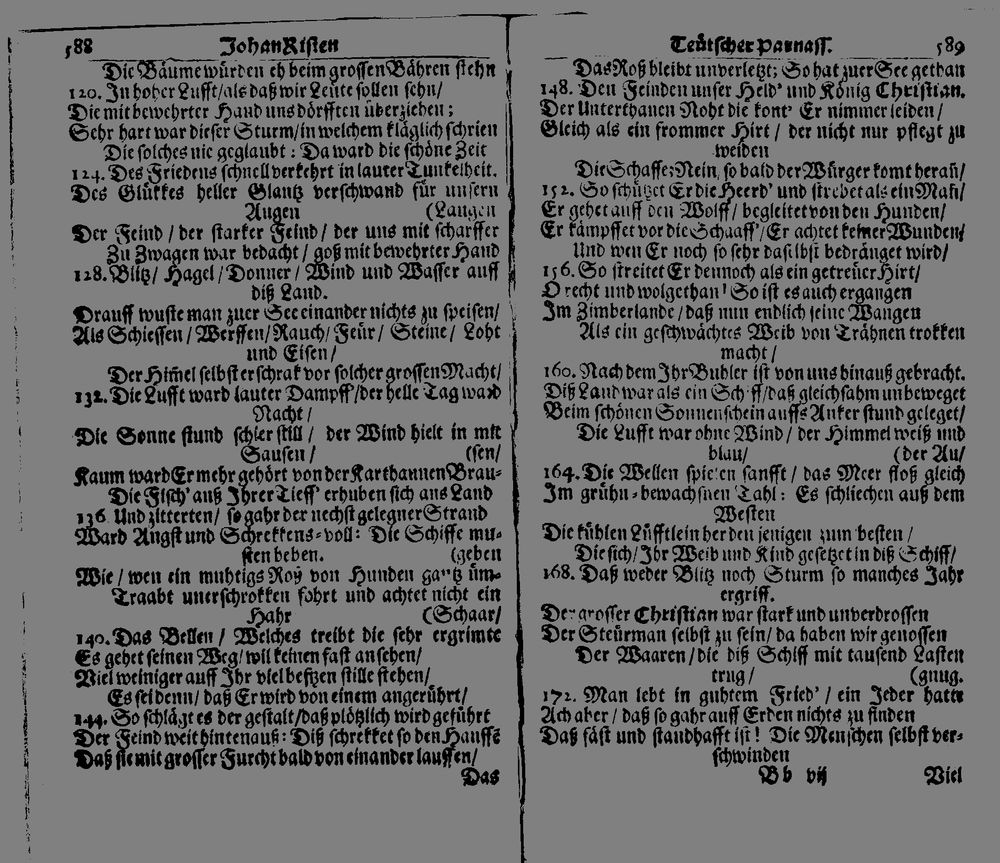 588 Johan Risten
Die Bäume würden eh beim grossen Bähren stehn
120. In hoher Lufft/ als daß wir Leute sollen sehn/
Die mit bewehrter Hand uns dörfften überziehen;
Sehr hart war dieser Sturm/ in welchem kläglich schrien
Die solches nie geglaubt: Da ward die schöne Zeit
124. Des Friedens schnell verkehrt in lauter Tunkelheit.
Des Glükkes heller Glantz verschwand für unsern
Augen (Langen
Der Feind / der starker Feind / der uns mit scharffer
Zu Zwagen war bedacht / goß mit bewehrter Hand
128. Blitz / Hagel / Donner / Wind und Wasser auff
diß Land.
Drauff wuste man zuer See einander nichts zu speisen/
Als Schiessen / Werffen / Rauch / Feür / Steine / Loht
und Eisen /
Der Him̄el selbst erschrak vor solcher grossen Macht/
132. Die Lufft ward lauter Dampff/ der helle Tag ward
Nacht /
Die Sonne stund schier still / der Wind hielt in mit
Sausen / (sen/
Kaum ward Er mehr gehört von der Karthaunen Brau-
Die Fisch' auß Ihrer Tieff' erhuben sich ans Land
136 Und zitterten / so gahr der nechst gelegner Strand
Ward Angst und Schrekkens-voll: Die Schiffe mu-
sten beben. (geben
Wie / wen ein muhtigs Roß von Hunden gantz üm-
Traabt unerschrokken fohrt und achtet nicht ein
Hahr (Schaar/
140. Das Bellen / Welches treibt die sehr ergrimte
Es gehet seinen Weg/ wil keinen fast ansehen/
Viel weiniger auff Ihr viel beltzen stille stehen/
Es sei denn / daß Er wird von einem angerührt /
144. So schlägt es der gestalt/ daß plötzlich wird geführt
Der Feind weit hinten auß: Diß schrekket so den Hauffe
Daß sie mit grosser Furcht bald von einander lauffen/
Das
Teütscher Parnass. 589
Das Roß bleibt unverletzt; So hat zuer See gethan
148. Den Feinden unser Held' und König Christian.
Der Unterthanen Noht die kont' Er nimmer leiden/
Gleich als ein frommer Hirt / der nicht nur pflegt zu
weiden
Die Schaffe; Nein, so bald der Würger komt heran̄/
152. So schützet Er die Heerd' und strebet als ein Man̄/
Er gehet auff den Wolff / begleitet von den Hunden/
Er kämpffet vor die Schaaff'/ Er achtet keiner Wunden/
Und wen Er noch so sehr daselbst bedränget wird/
156. So streitet Er dennoch als ein getreüer Hirt/
O recht und wolgethan! So ist es auch ergangen
Im Zimberlande / daß nun endlich seine Wangen
Als ein geschwächtes Weib von Trähnen trokken
macht /
160. Nach dem Ihr Buhler ist von uns hinauß gebracht.
Diß Land war als ein Schiff/ daß gleichsahm unbeweget
Beim schönen Sonnenschein auffs Anker stund geleget/
Die Lufft war ohne Wind / der Himmel weiß und
blau/ (der Au/
164. Die Wellen spielen sanfft / das Meer floß gleich
Im grühn-bewachsnen Tahl: Es schliechen auß dem
Westen
Die kühlen Lüfftlein her den jenigen zum besten /
Die sich/ Ihr Weib und Kind gesetzet in diß Schiff/
168. Daß weder Blitz noch Sturm so manches Jahr
ergriff.
Der grosser Christian war stark und unverdrossen
Der Steürman selbst zu sein / da haben wir genossen
Der Waaren / die diß Schiff mit tausend Lasten
trug / (gnug.
172. Man lebt in guhtem Fried' / ein Jeder hatte
Ach aber / daß so gahr auff Erden nichts zu finden
Daß fäst und standhafft ist! Die Menschen selbst ver-
schwinden
Bb vij Viel